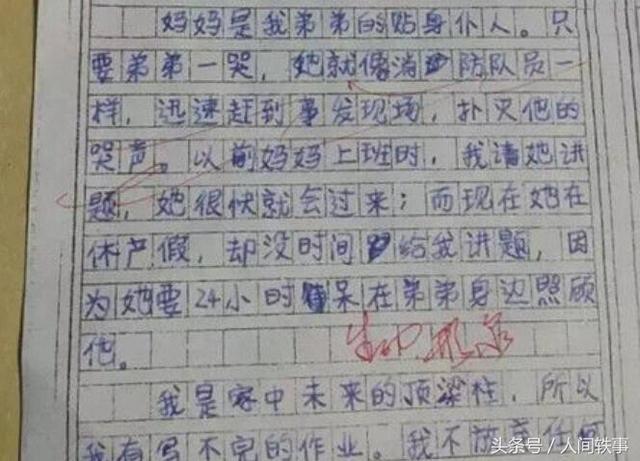 妈妈是我弟弟的贴身仆人。只
要弟弟一哭，她就像消防队员一
样，迅速赶到事发现场，扑灭他的
哭声。以前妈妈上班时，我请她讲
题，她很快就会过来；而现在她在
休产假，却没时间给我讲题，因
为她要24小时呆在弟弟身边照顾
他。
生动形象
我是家中未来的顶梁柱，所以
我有写不完的作业。我不放弃任何
头条号／人间轶事